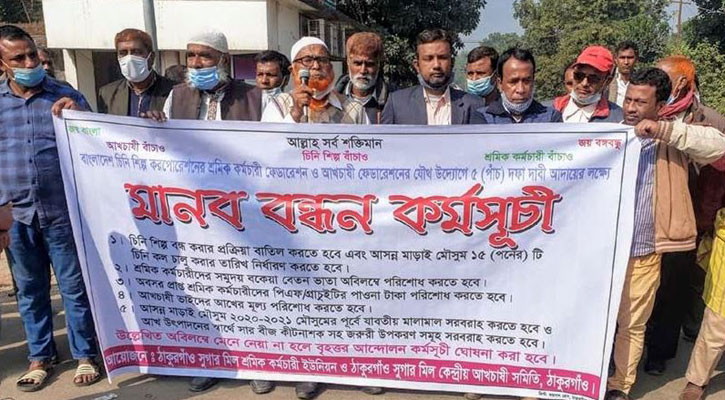 জয় বাংলা
আল্লাহ সর্ব শক্তিমান
জয় বঙ্গবন্ধু
আখচাষী বাঁচাও
চিনি শিল্প বাঁচাও
শ্রমিক কর্মচারী বাঁচাও
বাংলাদেশ চিনি শিল্প করপোরেশনের শ্রমিক কর্মচারী ফেডারেশন ও আখচাষী ফেডারেশনের যৌথ উদ্যোগে ৫ (পাঁচ) দফা দাবী আদায়ের লক্ষ্যে
মানব বন্ধন কর্মসূচী
১। চিনি শিল্প বন্ধ করার প্রক্রিয়া বাতিল করতে হবে এবং আসন্ন মাড়াই মৌসুম ১৫ (পনের) টি
চিনি কল চালু করার তারিখ নির্ধারণ করতে হবে।
২। শ্রমিক কর্মচারীদের সমুদয় বকেয়া বেতন ভাতা অবিলম্বে পরিশোধ করতে হবে।
৩। অবসর প্রাপ্ত শ্রমিক কর্মচারীদের পিএফ/গ্রাচুইটির পাওনা টাকা পরিশোধ করতে হবে।
৪। আখচাষী ভাইদের আখের মূল্য পরিশোধ করতে হবে।
৫। আসন্ন মাড়াই মৌসুম ২০২০-২০২১ মৌসুমের পূর্বে যাবতীয় মালামাল সরবরাহ করতে হবে ও
আখ উৎপাদনের স্বার্থে সার বীজ কীটনাশক সহ জরুরী উপকরণ সমূহ সরবরাহ করতে হবে।
উল্লেখিত অবিলম্বে মেনে নেয়া না হলে বৃহত্তর আন্দোলন কর্মসূচী ঘোষনা করা হবে।
আয়োজনে : ঠাকুরগাঁও সুগার মিল শ্রমিক কর্মচারী ইউনিয়ন ও ঠাকুরগাঁও সুগার মিল কেন্দ্রীয় আখচাষী সমিতি, ঠাকুরগাঁও।